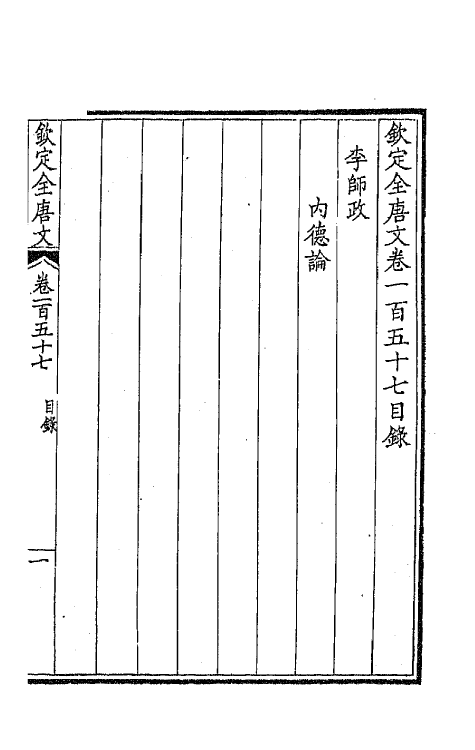 欽定全唐文卷一百五十七目錄
李師政
內德論
欽定全唐文
卷一百五十七
目錄
一